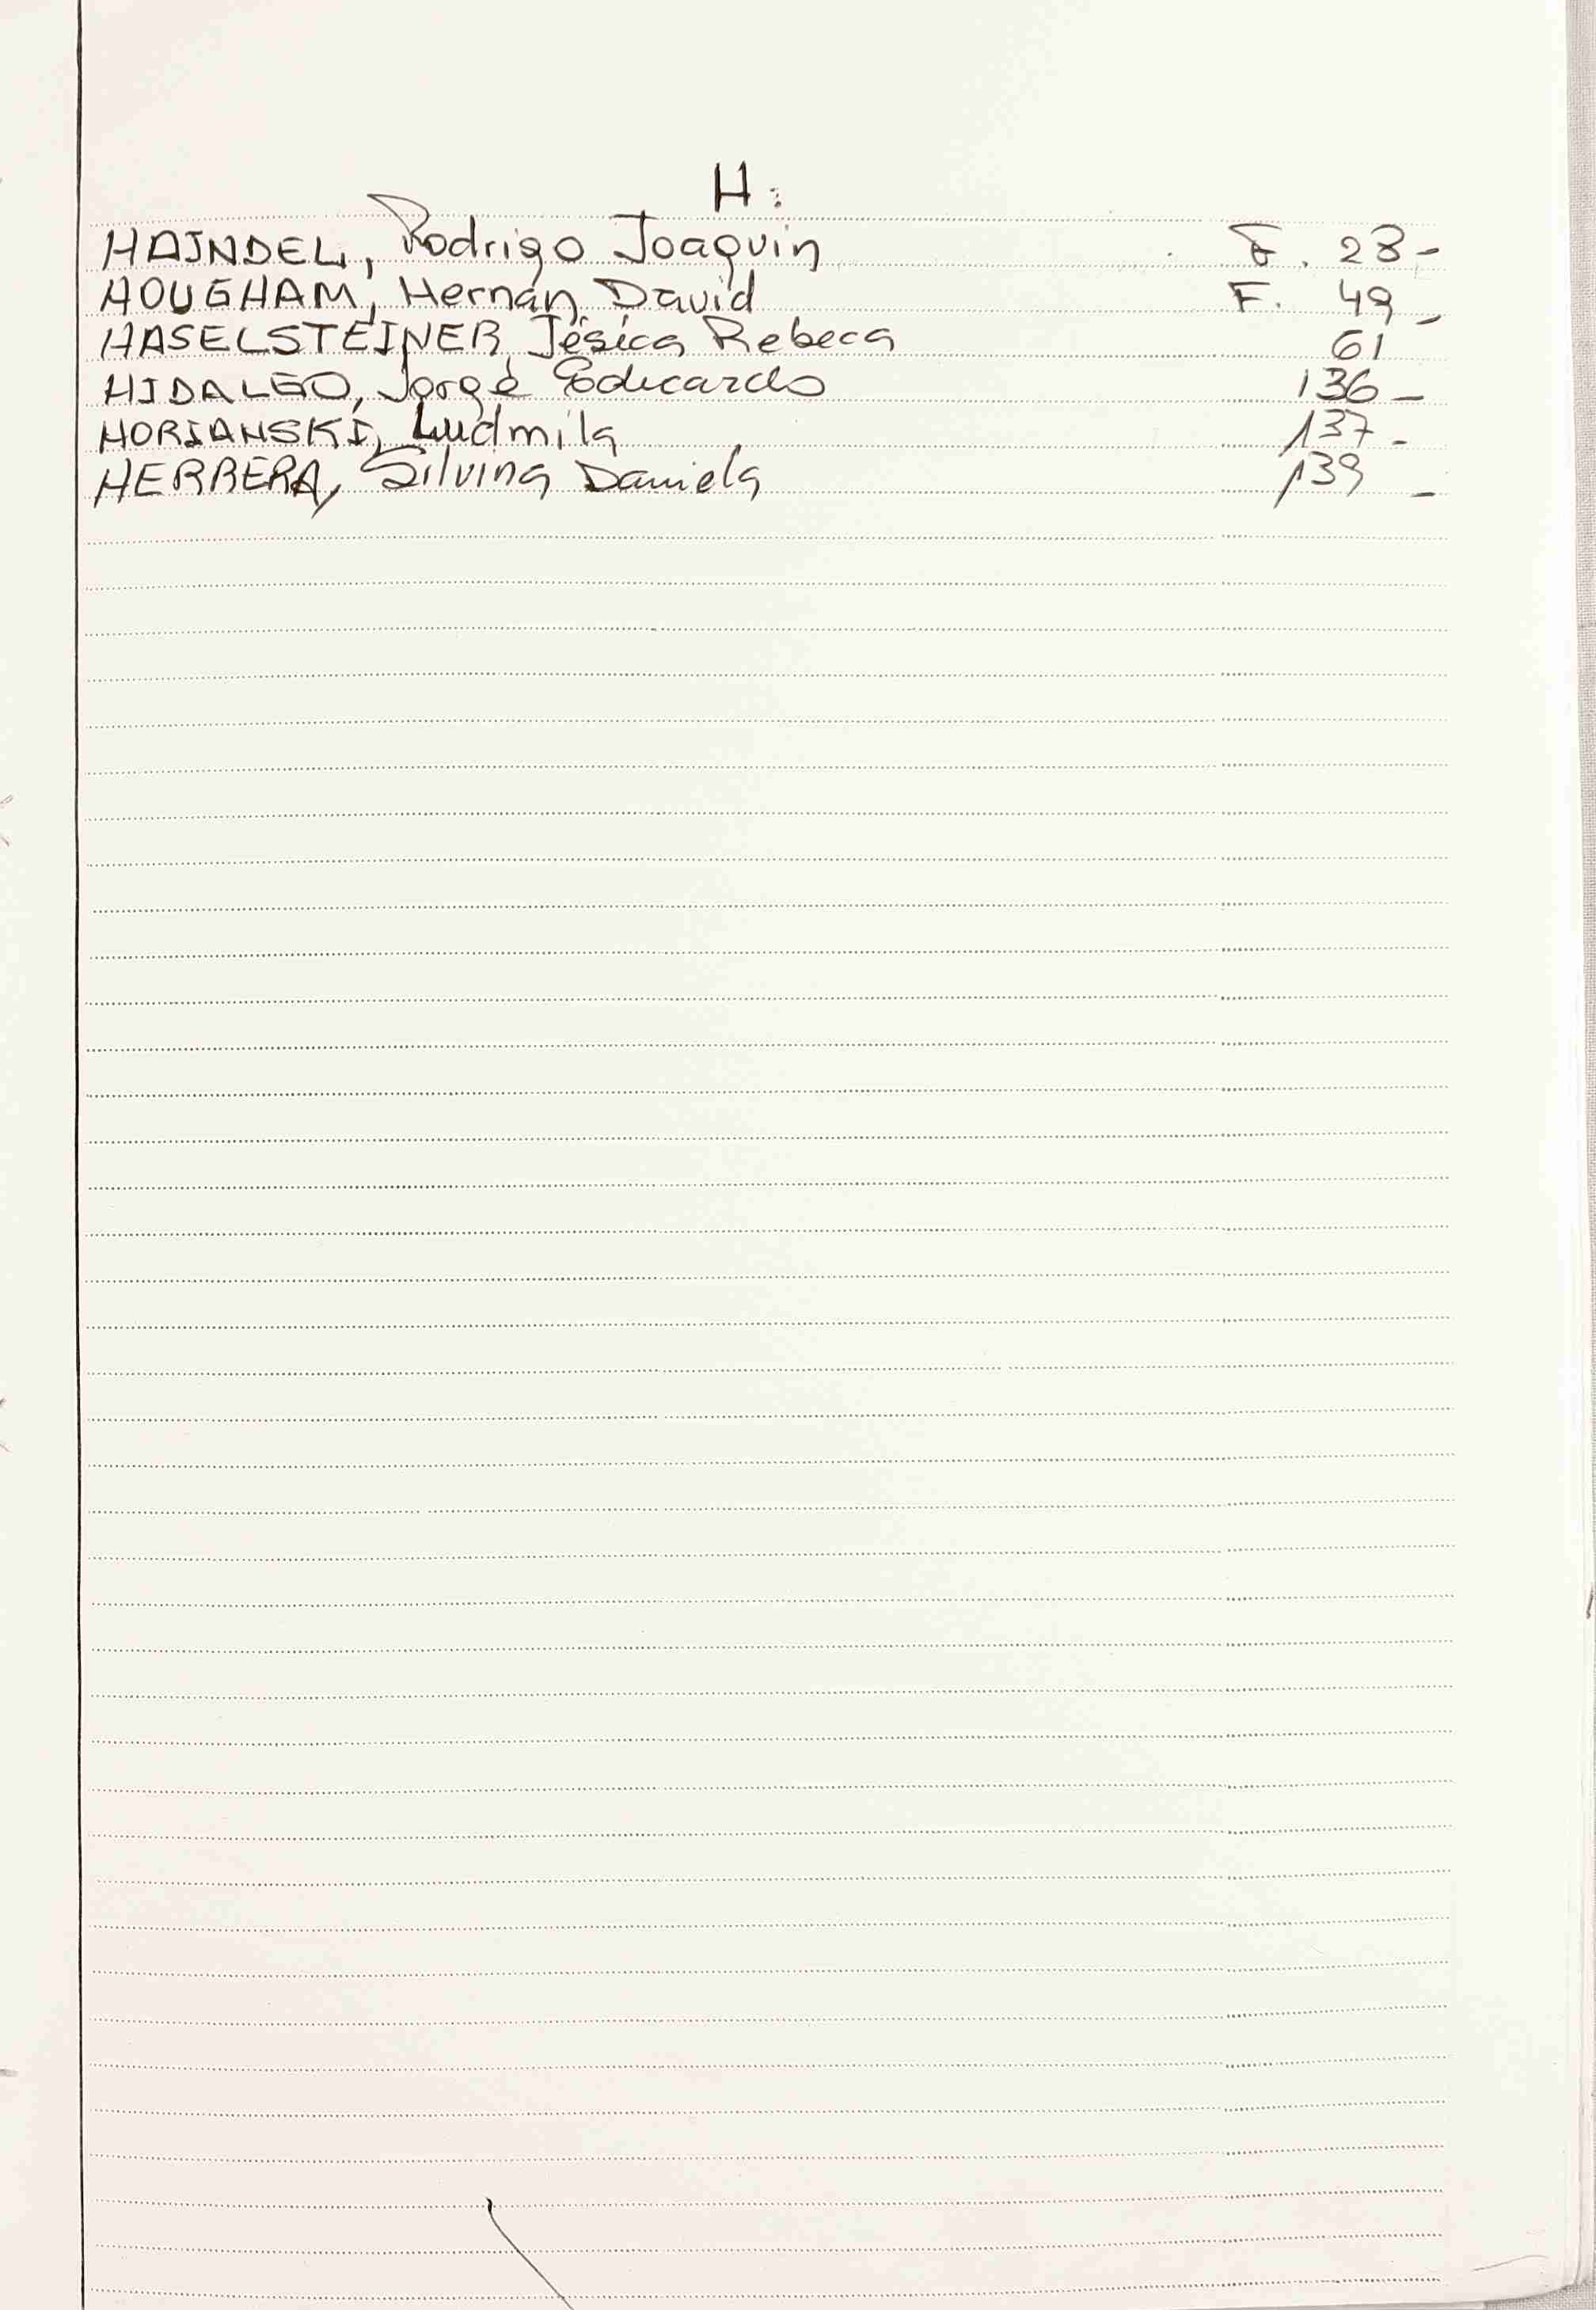 H:
HAINDEL, Rodrigo Joaquin F. 23-
HOUGHAM, Hernán David F. 49-
HASELSTEINER, Jésica Rebeca 61
HIDALGO, Jorge Eduardo 136-
HORIANSKI, Ludmila 137-
HERRERA, Silvina Daniela 139-